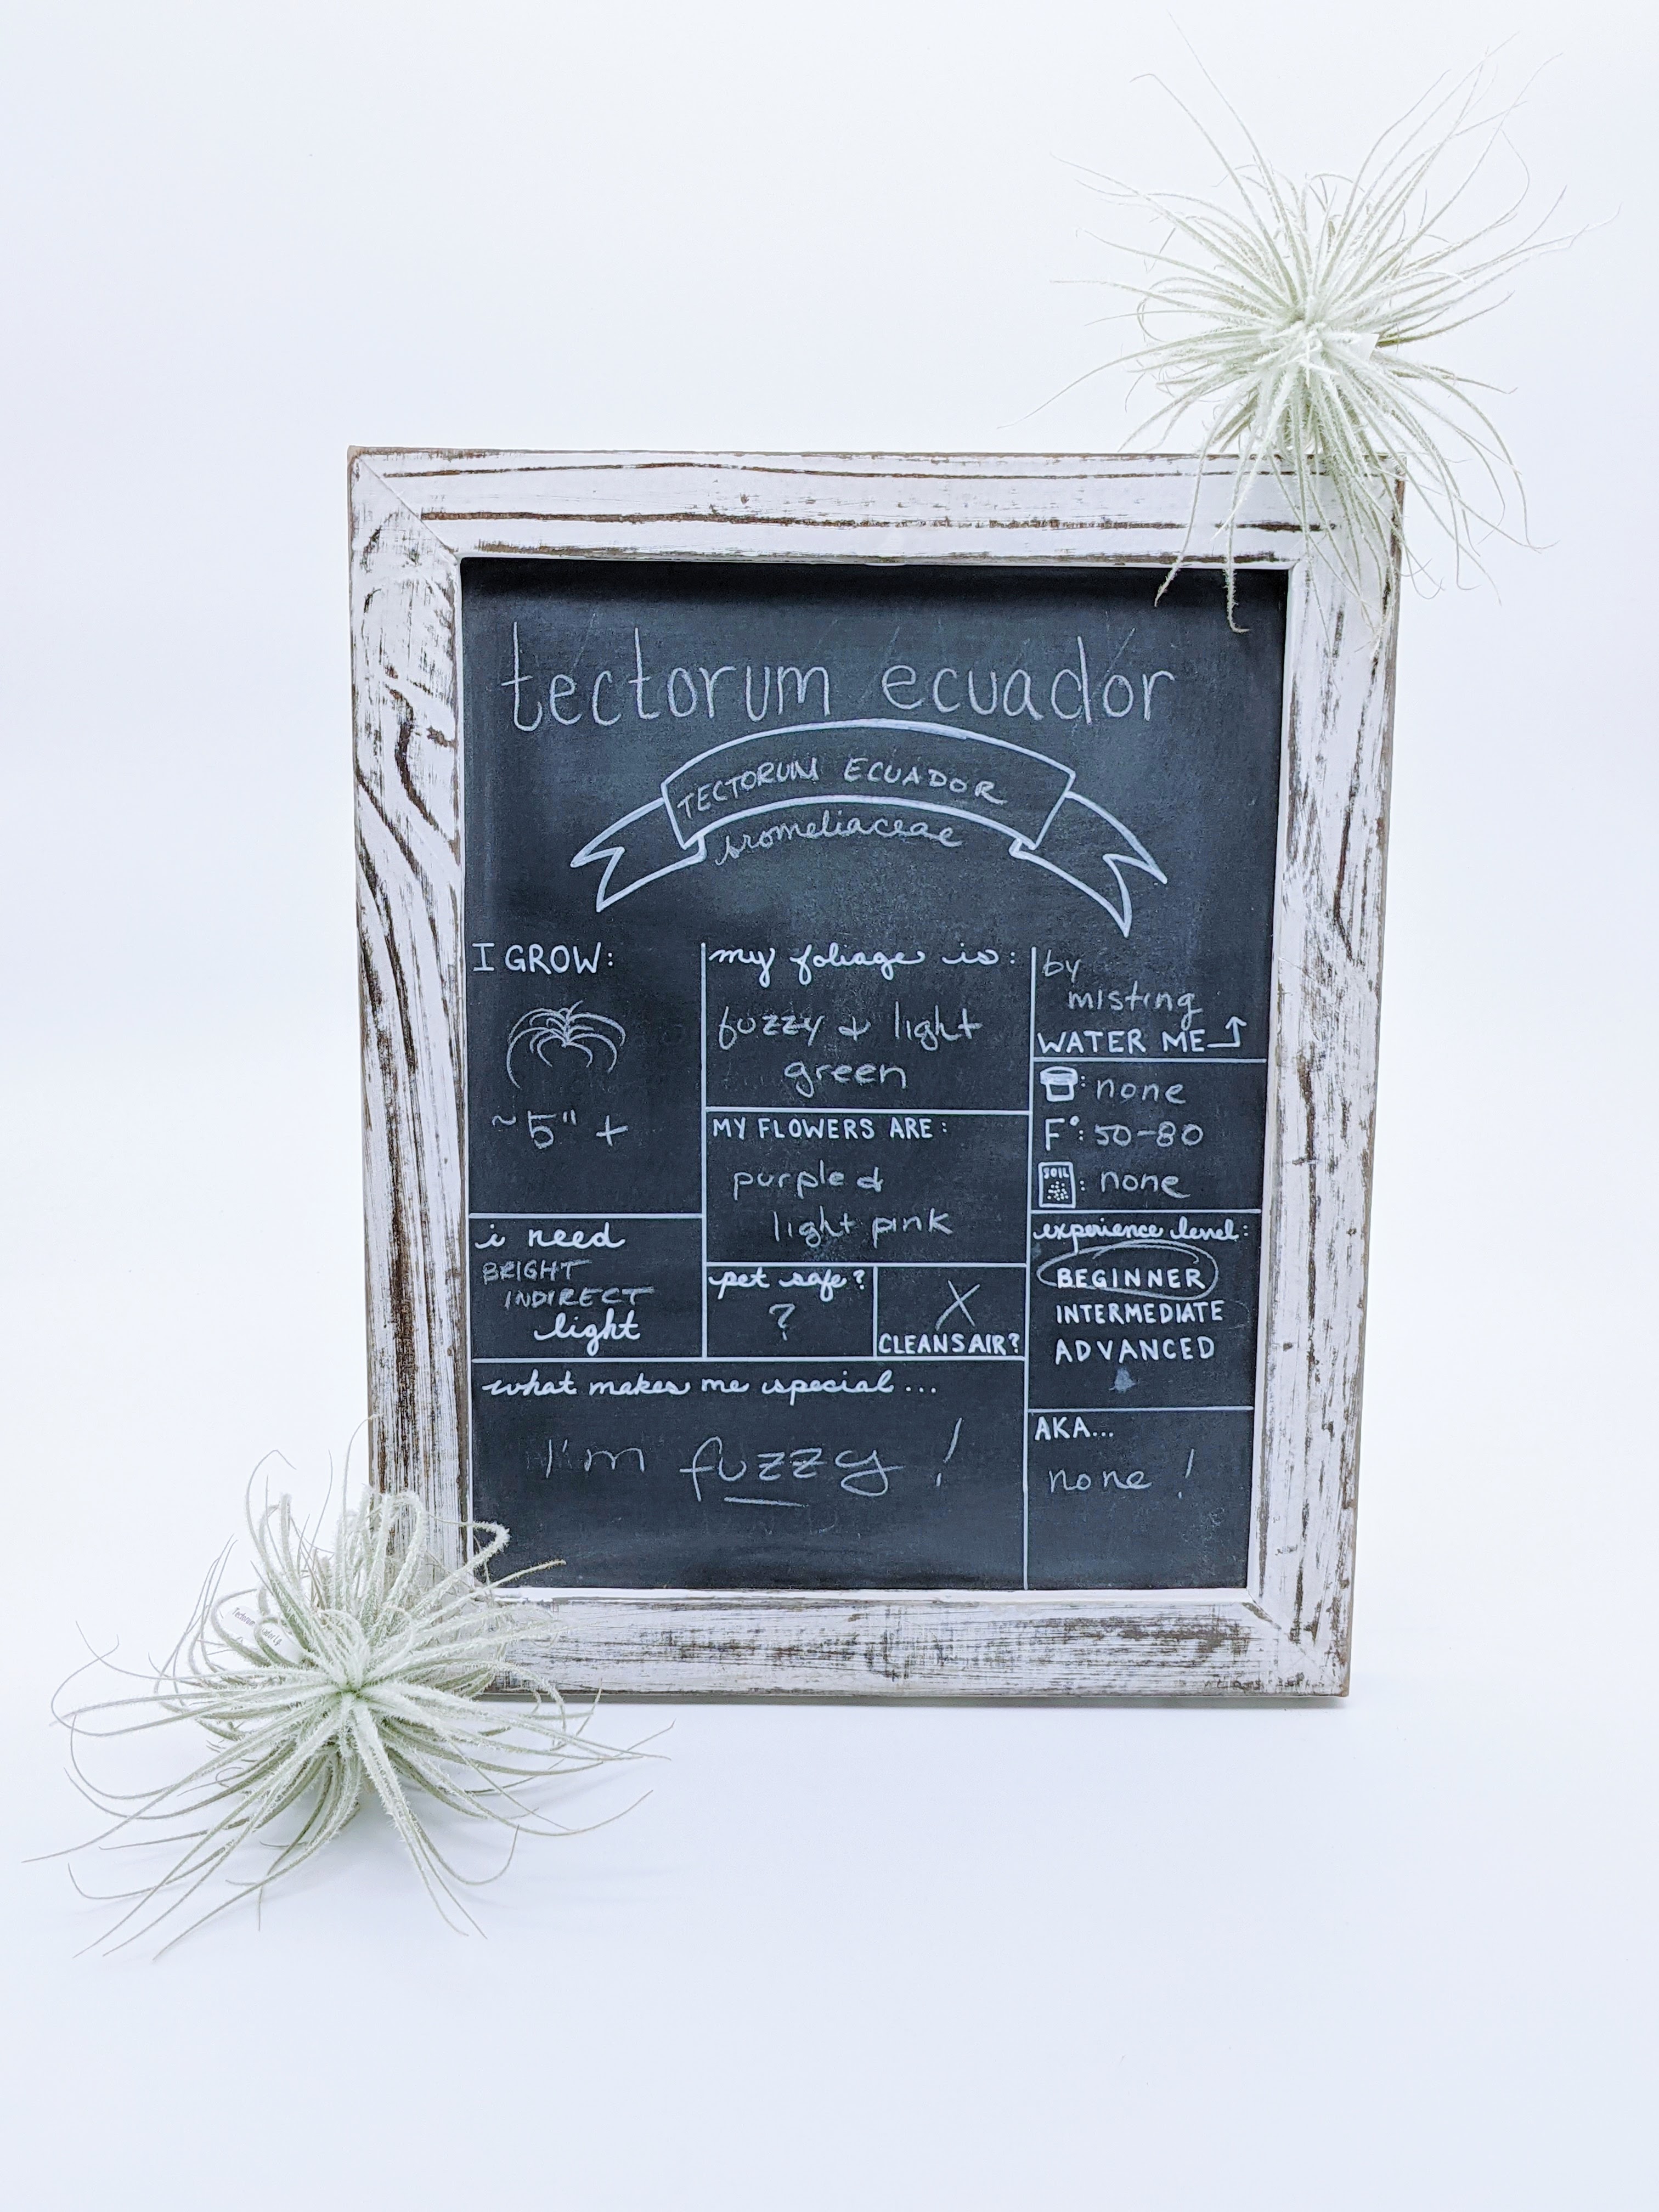 tectorum ecuador
TECTORUM ECUADOR
bromeliaceae
I GROW:
~5" +
i need
BRIGHT
INDIRECT
light
my foliage is:
fuzzy & light
green
MY FLOWERS ARE:
purple &
light pink
pet safe?
?
X
CLEANS AIR?
by
misting
WATER ME
: none
F°: 50-80
SOIL : none
experience level:
BEGINNER
INTERMEDIATE
ADVANCED
what makes me special...
I'm fuzzy!
AKA...
none!